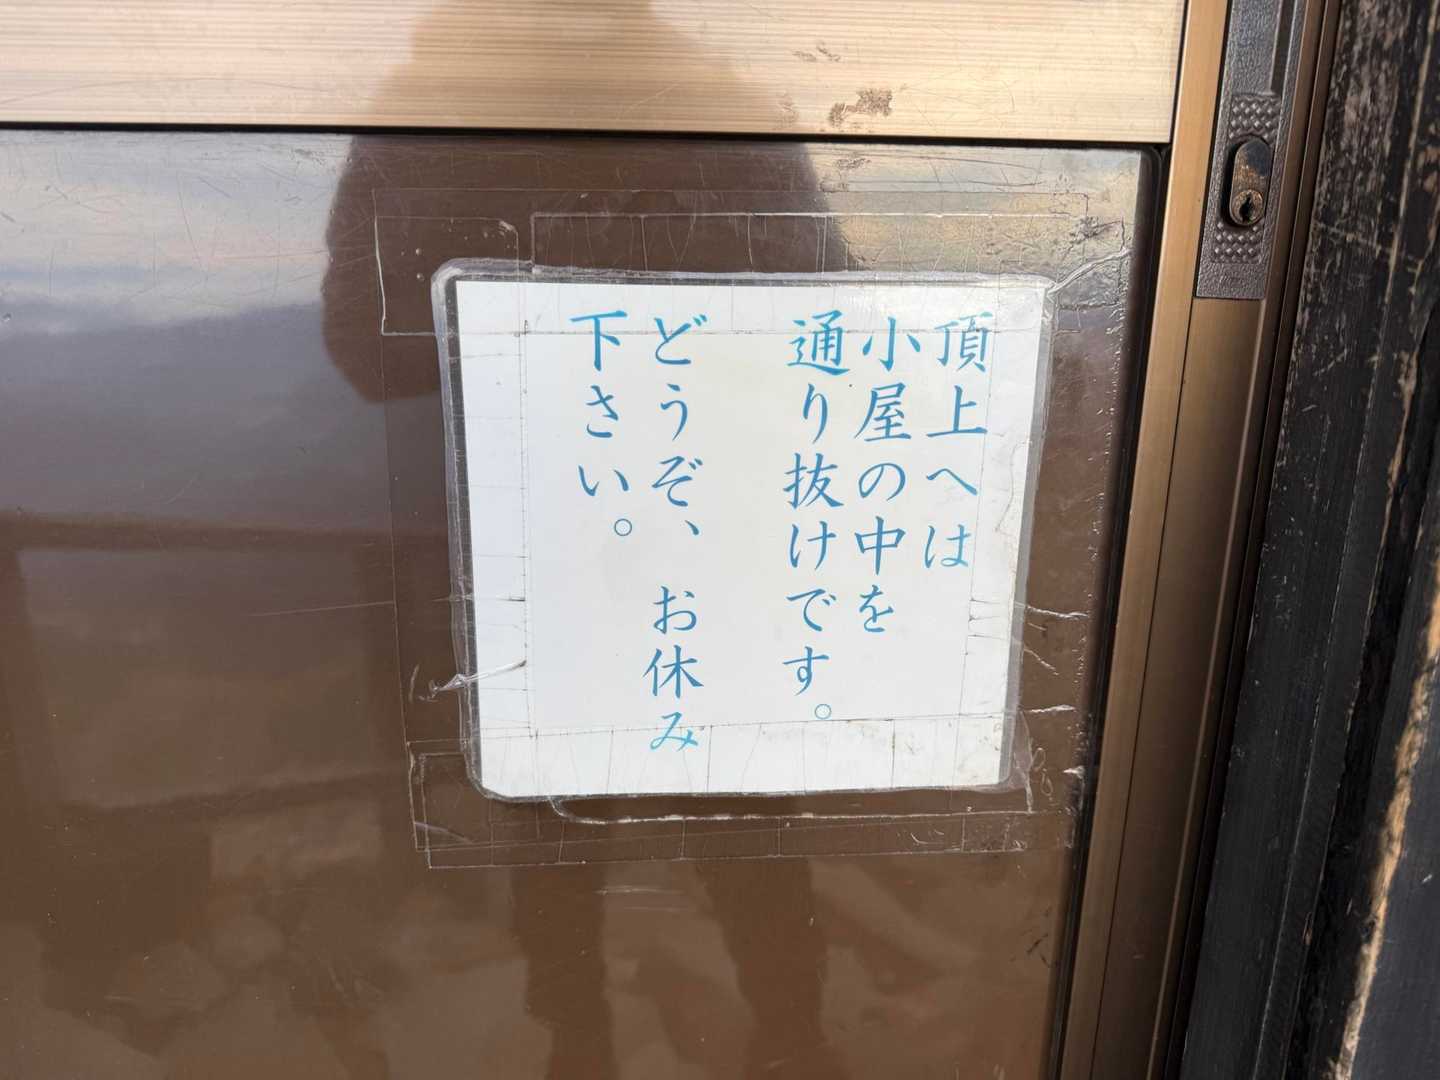 頂上へは
小屋の中を
通り抜けです。
どうぞ、お休み
下さい。